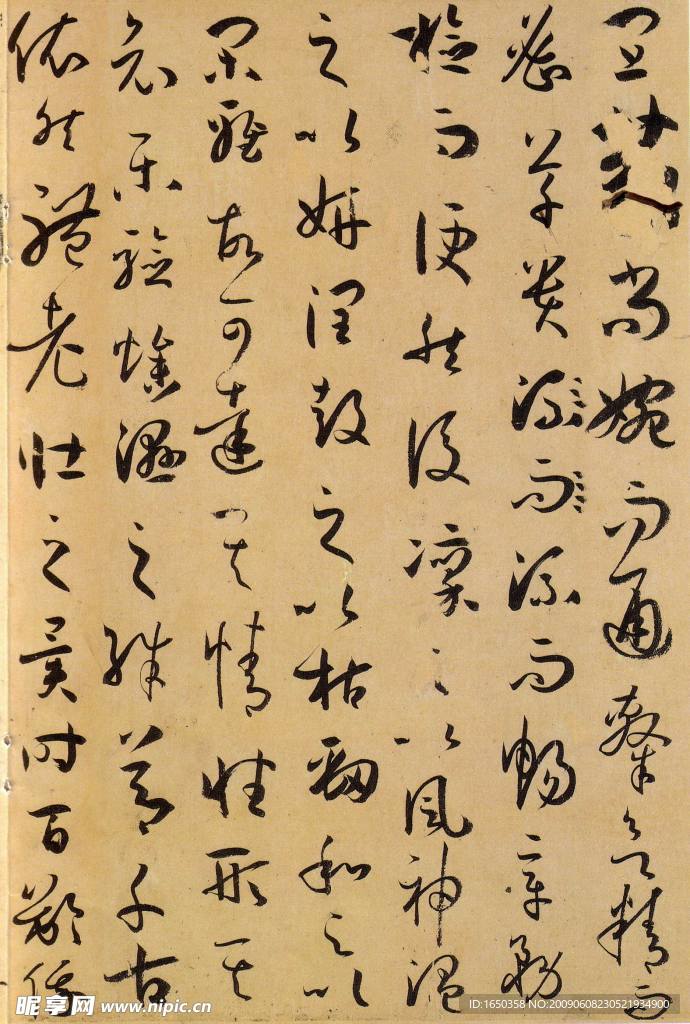 宜篆尚婉而通隸欲精而
密草貴流而流而暢章務
檢而便然後凜之以風神溫
之以妍潤鼓之以枯勁和之以
閑雅故可達其情性形其
哀樂驗燥濕之殊節千古
依然體老壯之異時百齡俄
昵享网 www.nipic.cn
ID:1650358 NO:20090608230521934900